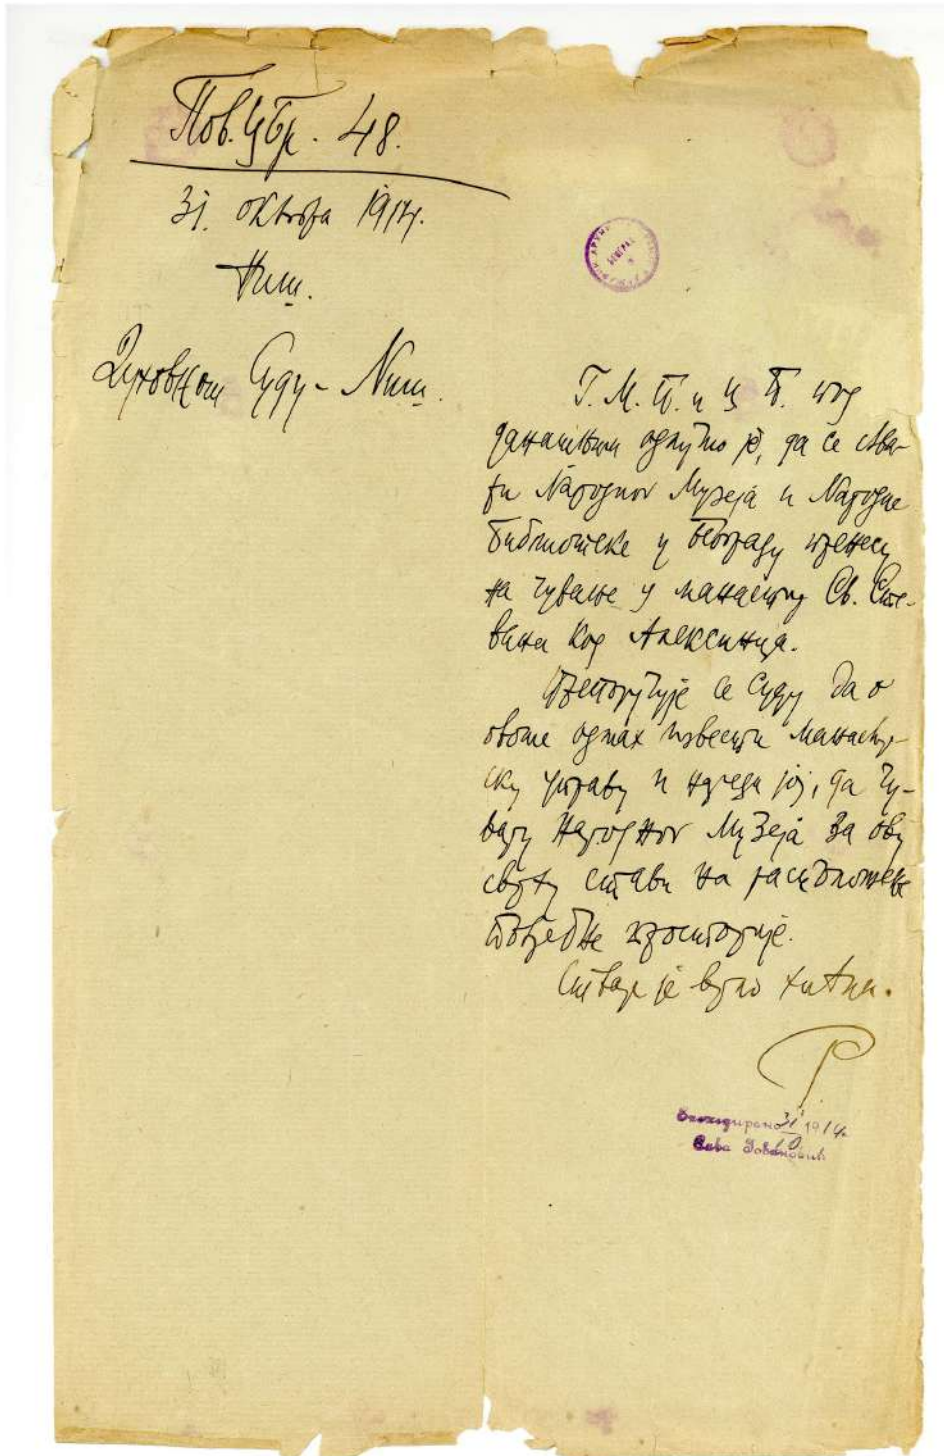 Пов. ЦБр. 48.
31. октобра 1914.
Ниш.
Духовном Суду – Ниш.
Г. М. П. и Ц П. под
данашњим одлучио је, да се ства-
ри Народног Музеја и Народне
Библиотеке у Београду пренесу
на чување у манастир Св. Сте-
вана код Алексинца.
Препоручује се Суду да о
овоме одмах извести манастир-
ску управу и нареди јој, да чу-
вару Народног Музеја за ову
сврху стави на расположење
потребне просторије.
Ствар је врло хитна.
Експедирано 31/10 1914
Сава Јовановић